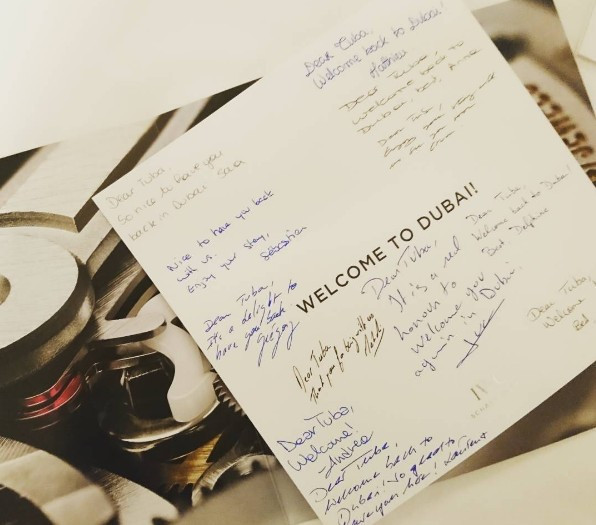 Dear Tuba,
Welcome back to Dubai!
Mathieu
Dear Tuba,
Welcome back to
Dubai, best,
Dear Tuba,
Dear Tuba,
So nice to have you
back in Dubai
Nice to have you back
with us.
Enjoy your stay,
Sebastian
WELCOME TO DUBAI!
Dear Tuba,
Welcome back to Dubai!
Best Delphine
Dear Tuba,
It's a delight to
have you back
Dear Tuba,
It is a real
honour to
welcome you
again in Dubai.
Dear Tuba
Thank you for being with us
Dear Tuba,
Welcome
Dear Tuba,
Welcome!
Andrea
Dear Tuba,
Welcome back to
Dubai, so great to
have you here! Laurent